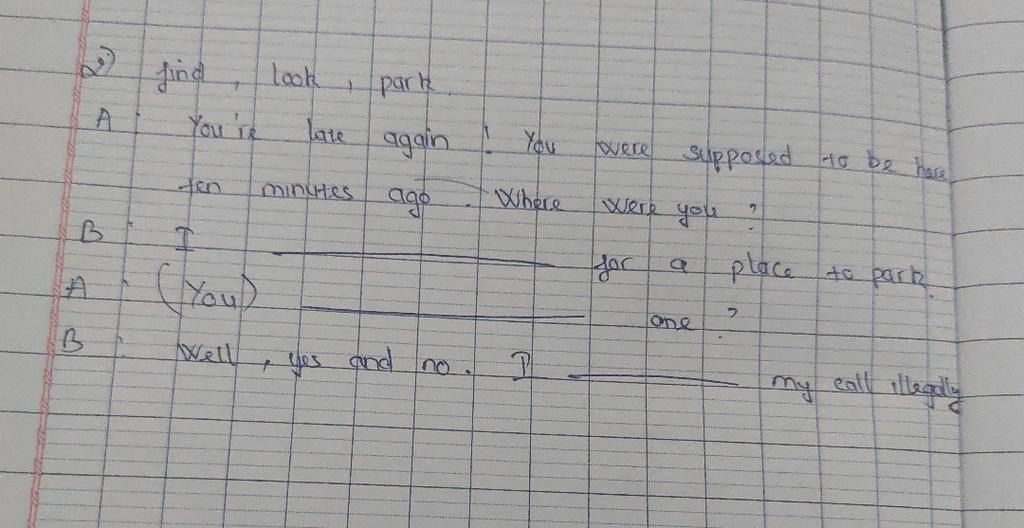 2) find, look, park.
A : You're late again! You were supposed to be here
ten minutes ago. Where were you?
B : I ____________ for a place to park.
A : (You) ____________ one?
B : Well, yes and no. I ________ my call illegally